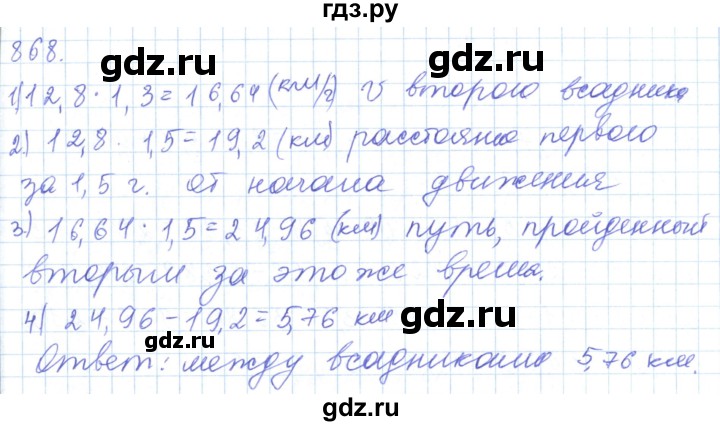 гдз.ру
868.
gdz.ru gdz.ru
1) 12,8 · 1,3 = 16,64 (км/г) V второго всадника
2) 12,8 · 1,5 = 19,2 (км) расстояние первого
gdz.ru gdz.ru
за 1,5 г. от начала движения
3) 16,64 · 1,5 = 24,96 (км) путь, пройденный
gdz.ru
вторым за это же время.
4) 24,96 - 19,2 = 5,76 км
gdz.ru gdz.ru
Ответ: между всадниками 5,76 км.
gdz.ru